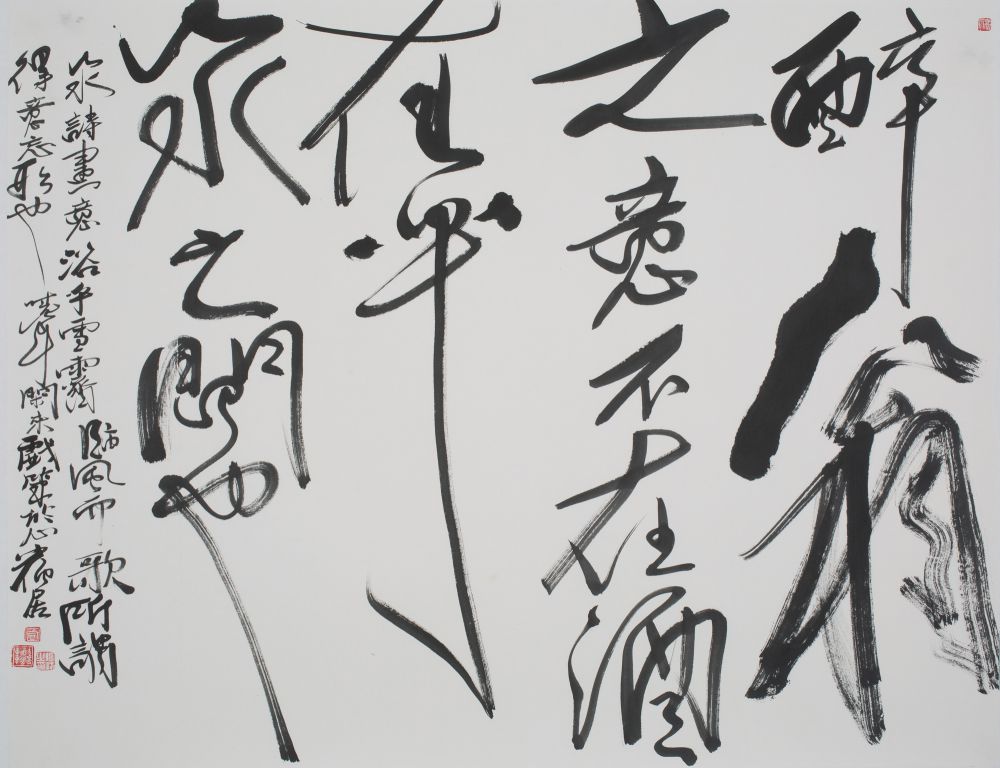 醉翁
之意不在酒
在乎
山水之間也
山水詩畫意浴乎雪霽臨風而歌所謂
得意忘形也 戲筆於 居